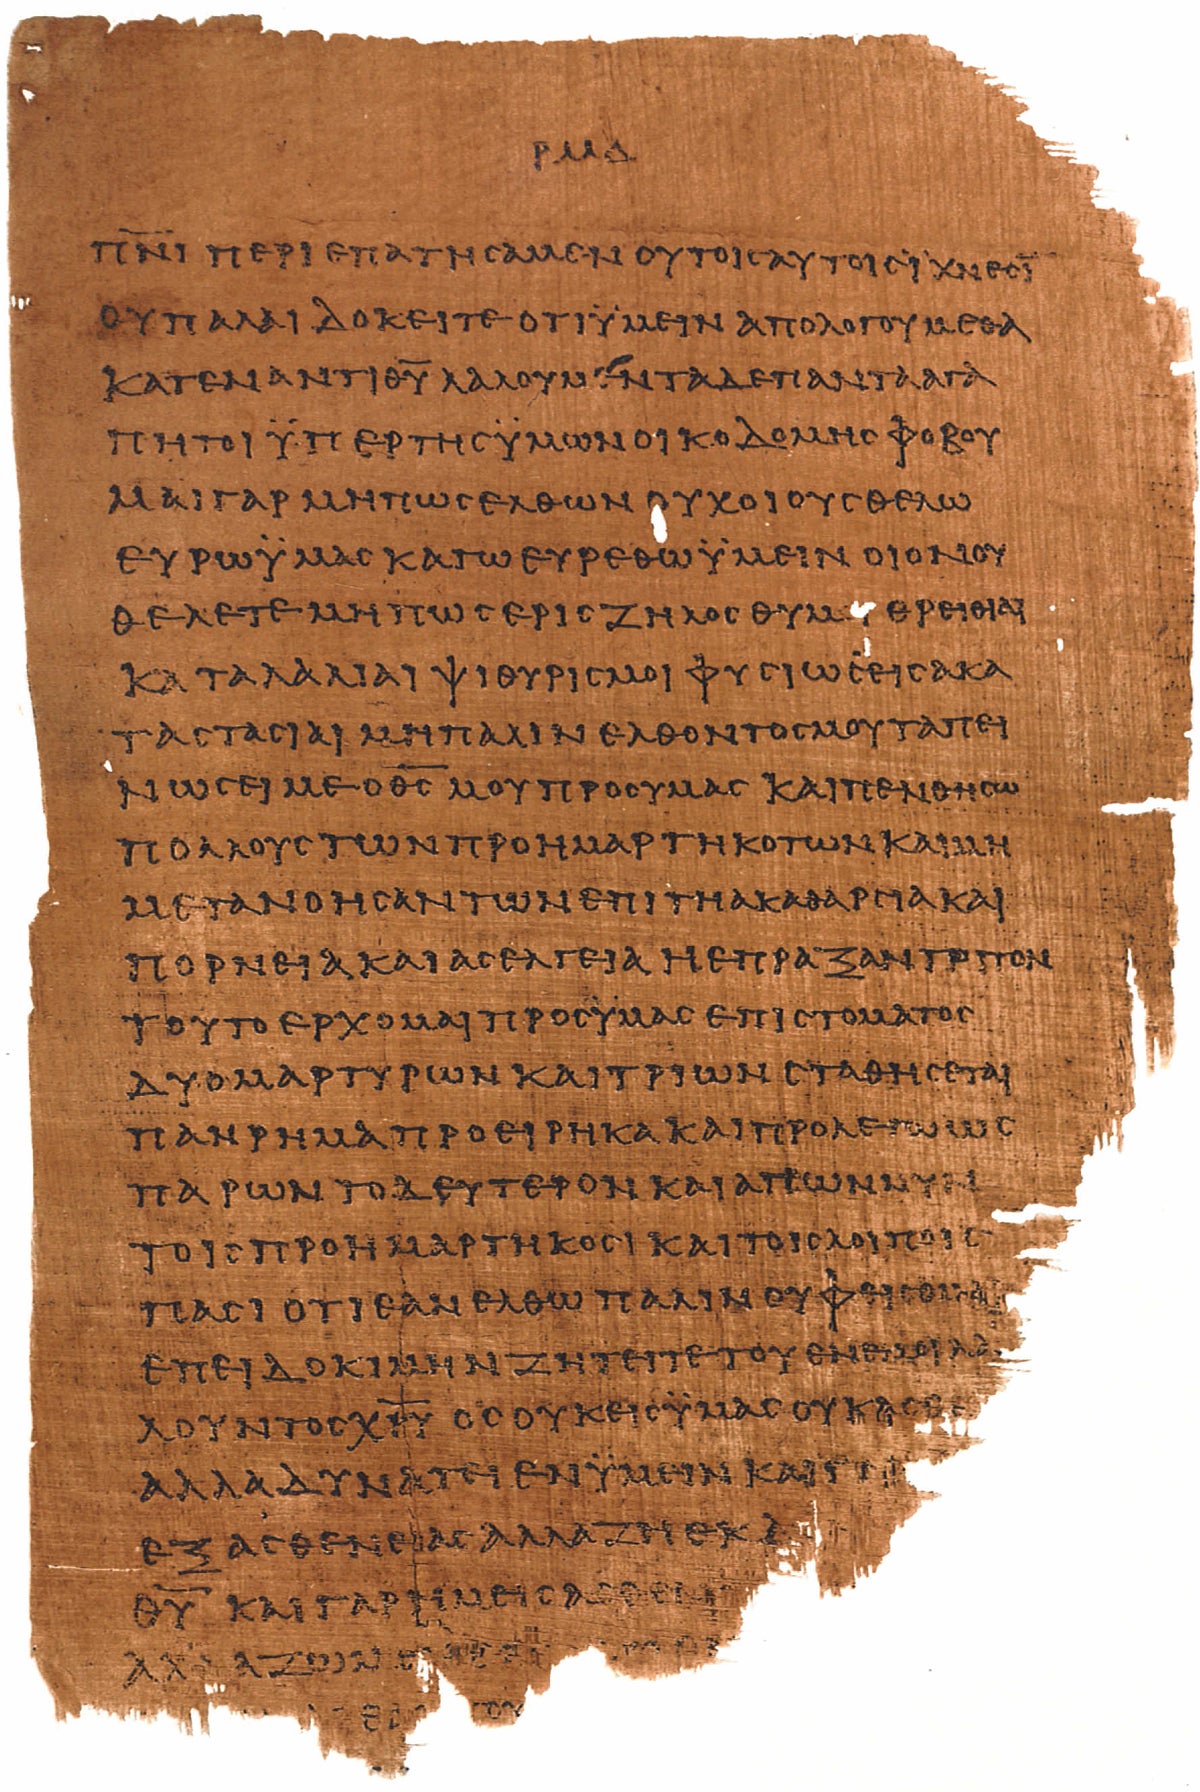 ΡΜΔ
Π̅Ν̅Ι ΠΕΡΙΕΠΑΤΗϹΑΜΕΝ ΟΥ ΤΟΙϹ ΑΥΤΟΙϹ ΪΧΝΕϹΙ̅
ΟΥ ΠΑΛΑΙ ΔΟΚΕΙΤΕ ΟΤΙ ΫΜΕΙΝ ΑΠΟΛΟΓΟΥΜΕΘΑ
ΚΑΤΕΝΑΝΤΙ Θ̅Υ̅ ΛΑΛΟΥΜΕΝ ΤΑ ΔΕ ΠΑΝΤΑ ΑΓΑ
ΠΗΤΟΙ ΫΠΕΡ ΤΗϹ ΫΜΩΝ ΟΙΚΟΔΟΜΗϹ ΦΟΒΟΥ
ΜΑΙ ΓΑΡ ΜΗ ΠΩϹ ΕΛΘΩΝ ΟΥΧ ΟΙΟΥϹ ΘΕΛΩ
ΕΥΡΩ ΫΜΑϹ ΚΑΓΩ ΕΥΡΕΘΩ ΫΜΕΙΝ ΟΙΟΝ ΟΥ
ΘΕΛΕΤΕ ΜΗ ΠΩϹ ΕΡΙϹ ΖΗΛΟϹ ΘΥΜΟΙ ΕΡΕΙΘΙΑΙ
ΚΑΤΑΛΑΛΙΑΙ ΨΙΘΥΡΙϹΜΟΙ ΦΥϹΙΩϹΕΙϹ ΑΚΑ
ΤΑϹΤΑϹΙΑΙ ΜΗ ΠΑΛΙΝ ΕΛΘΟΝΤΟϹ ΜΟΥ ΤΑΠΕΙ
ΝΩϹΕΙ ΜΕ Ο Θ̅Ϲ̅ ΜΟΥ ΠΡΟϹ ΥΜΑϹ ΚΑΙ ΠΕΝΘΗϹΩ
ΠΟΛΛΟΥϹ ΤΩΝ ΠΡΟΗΜΑΡΤΗΚΟΤΩΝ ΚΑΙ ΜΗ
ΜΕΤΑΝΟΗϹΑΝΤΩΝ ΕΠΙ ΤΗ ΑΚΑΘΑΡϹΙΑ ΚΑΙ
ΠΟΡΝΕΙΑ ΚΑΙ ΑϹΕΛΓΕΙΑ Η ΕΠΡΑΞΑΝ ΤΡΙΤΟΝ
ΤΟΥΤΟ ΕΡΧΟΜΑΙ ΠΡΟϹ ΫΜΑϹ ΕΠΙ ϹΤΟΜΑΤΟϹ
ΔΥΟ ΜΑΡΤΥΡΩΝ ΚΑΙ ΤΡΙΩΝ ϹΤΑΘΗϹΕΤΑΙ
ΠΑΝ ΡΗΜΑ ΠΡΟΕΙΡΗΚΑ ΚΑΙ ΠΡΟΛΕΓΩ ΩϹ
ΠΑΡΩΝ ΤΟ ΔΕΥΤΕΡΟΝ ΚΑΙ ΑΠΩΝ ΝΥΝ
ΤΟΙϹ ΠΡΟΗΜΑΡΤΗΚΟϹΙ ΚΑΙ ΤΟΙϹ ΛΟΙΠΟΙϹ
ΠΑϹΙ ΟΤΙ ΕΑΝ ΕΛΘΩ ΠΑΛΙΝ ΟΥ ΦΕΙϹΟΜΑΙ
ΕΠΕΙ ΔΟΚΙΜΗΝ ΖΗΤΕΙΤΕ ΤΟΥ ΕΝ ΕΜΟΙ ΛΑ
ΛΟΥΝΤΟϹ Χ̅Ρ̅Υ̅ ΟϹ ΟΥΚ ΕΙϹ ΫΜΑϹ ΟΥΚ ΑϹΘΕ
ΑΛΛΑ ΔΥΝΑΤΕΙ ΕΝ ΫΜΕΙΝ ΚΑΙ Γ
ΕΞ ΑϹΘΕΝΕΙΑϹ ΑΛΛΑ ΖΗ ΕΚ Δ
Θ̅Υ̅ ΚΑΙ ΓΑΡ ΗΜΕΙϹ ΑϹΘΕΝ
ΑΛΛΑ ΖΩΜΕΝ